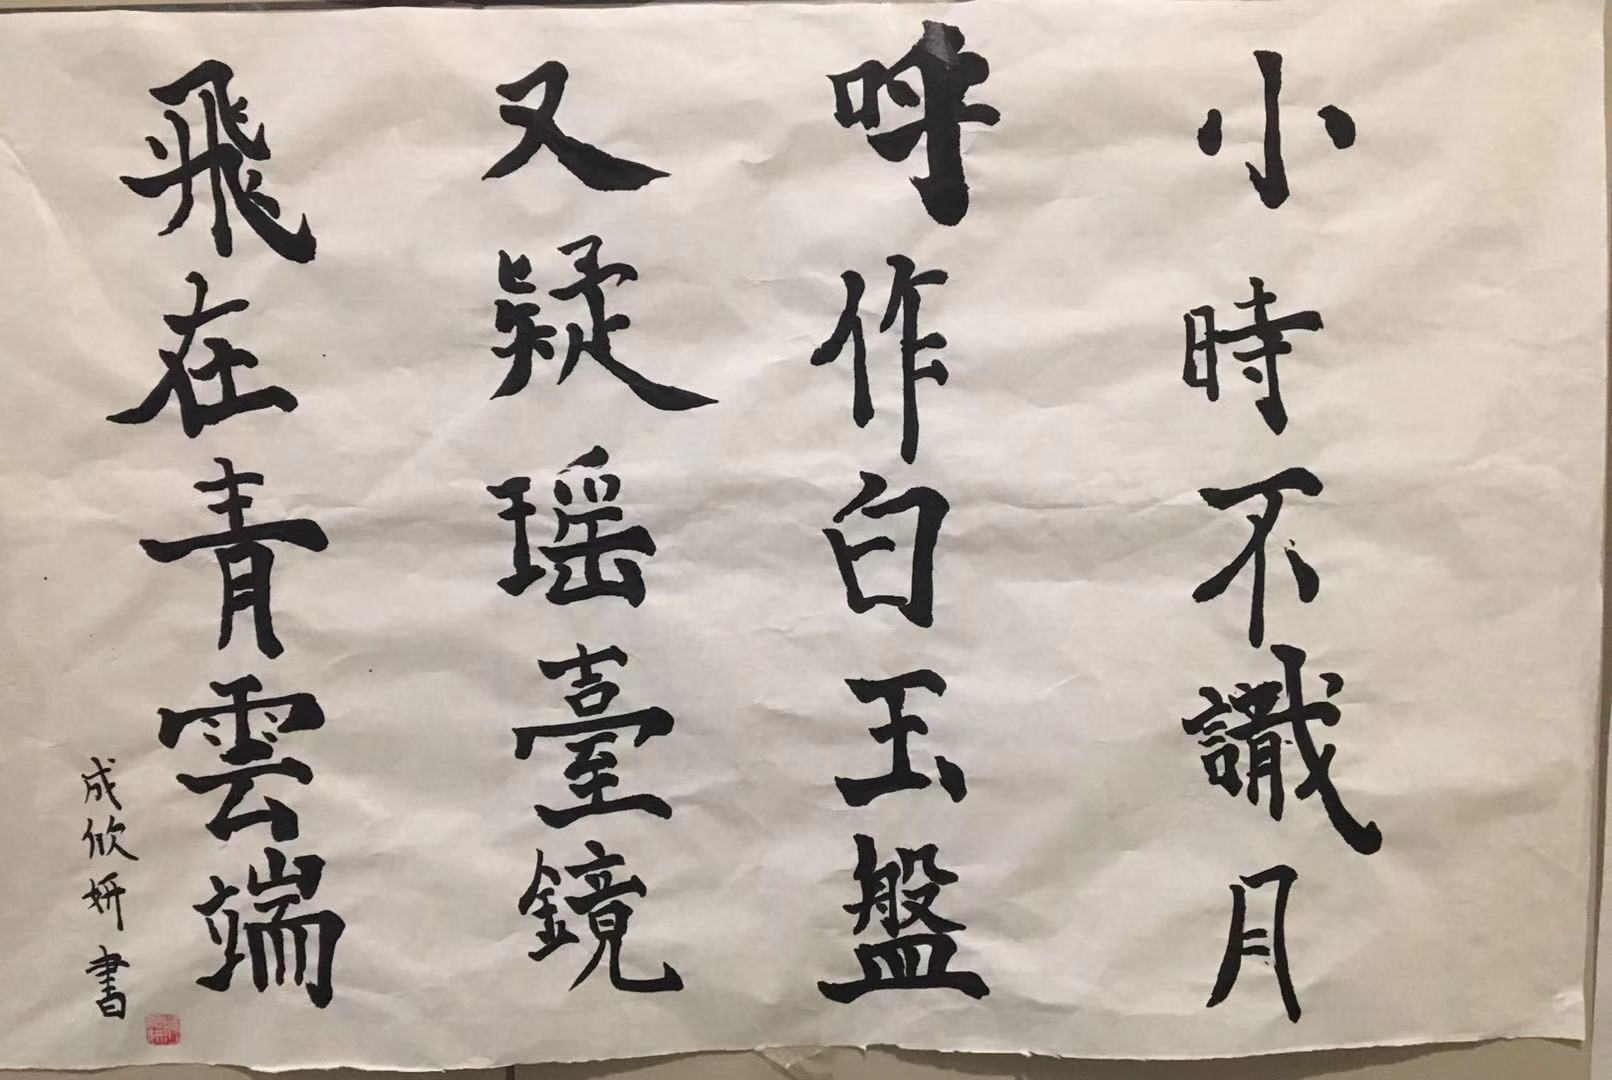 小時不識月
呼作白玉盤
又疑瑶臺鏡
飛在青雲端
成俽妍書